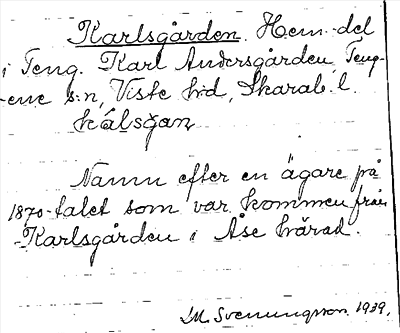 Karlsgården. Hem.del
i Teng. Karl Andersgården, Teng-
-ene s:n, Viste h:d, Skarab. l.
kálsgan
Namn efter en ägare på
1870-talet som var kommen från
-Karlsgården i Åse härad.
M. Svenungsson 1939.